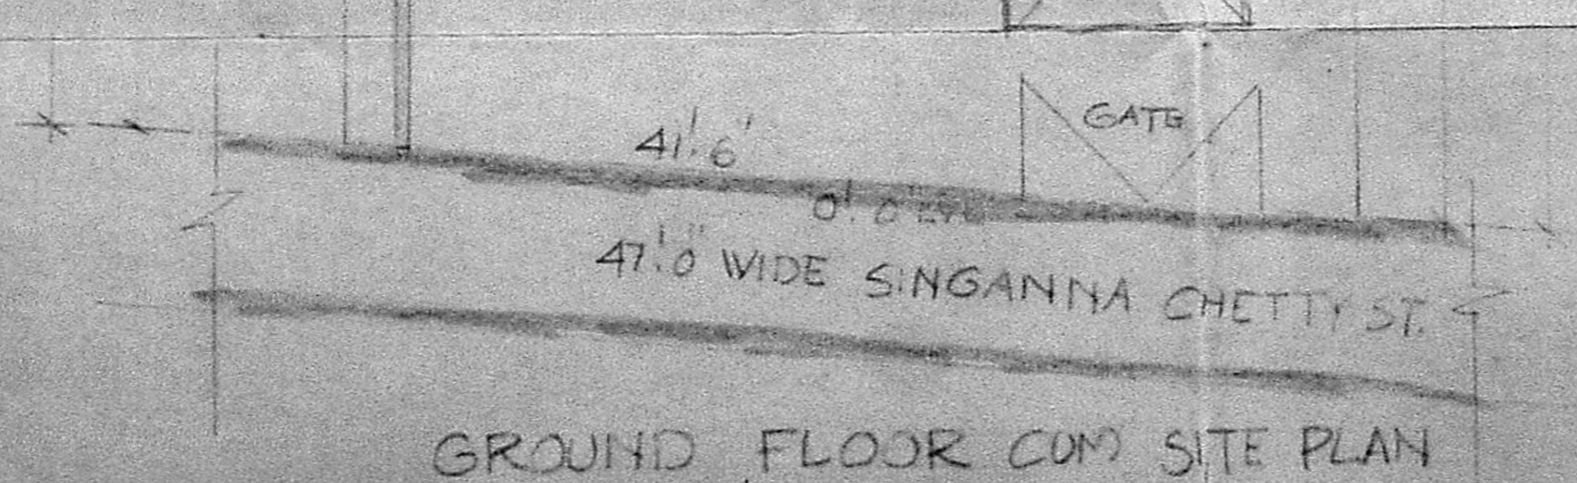 GATE
41'.6"
0'.0 LVL
47'.0" WIDE SINGANNA CHETTY ST.
GROUND FLOOR CUM SITE PLAN